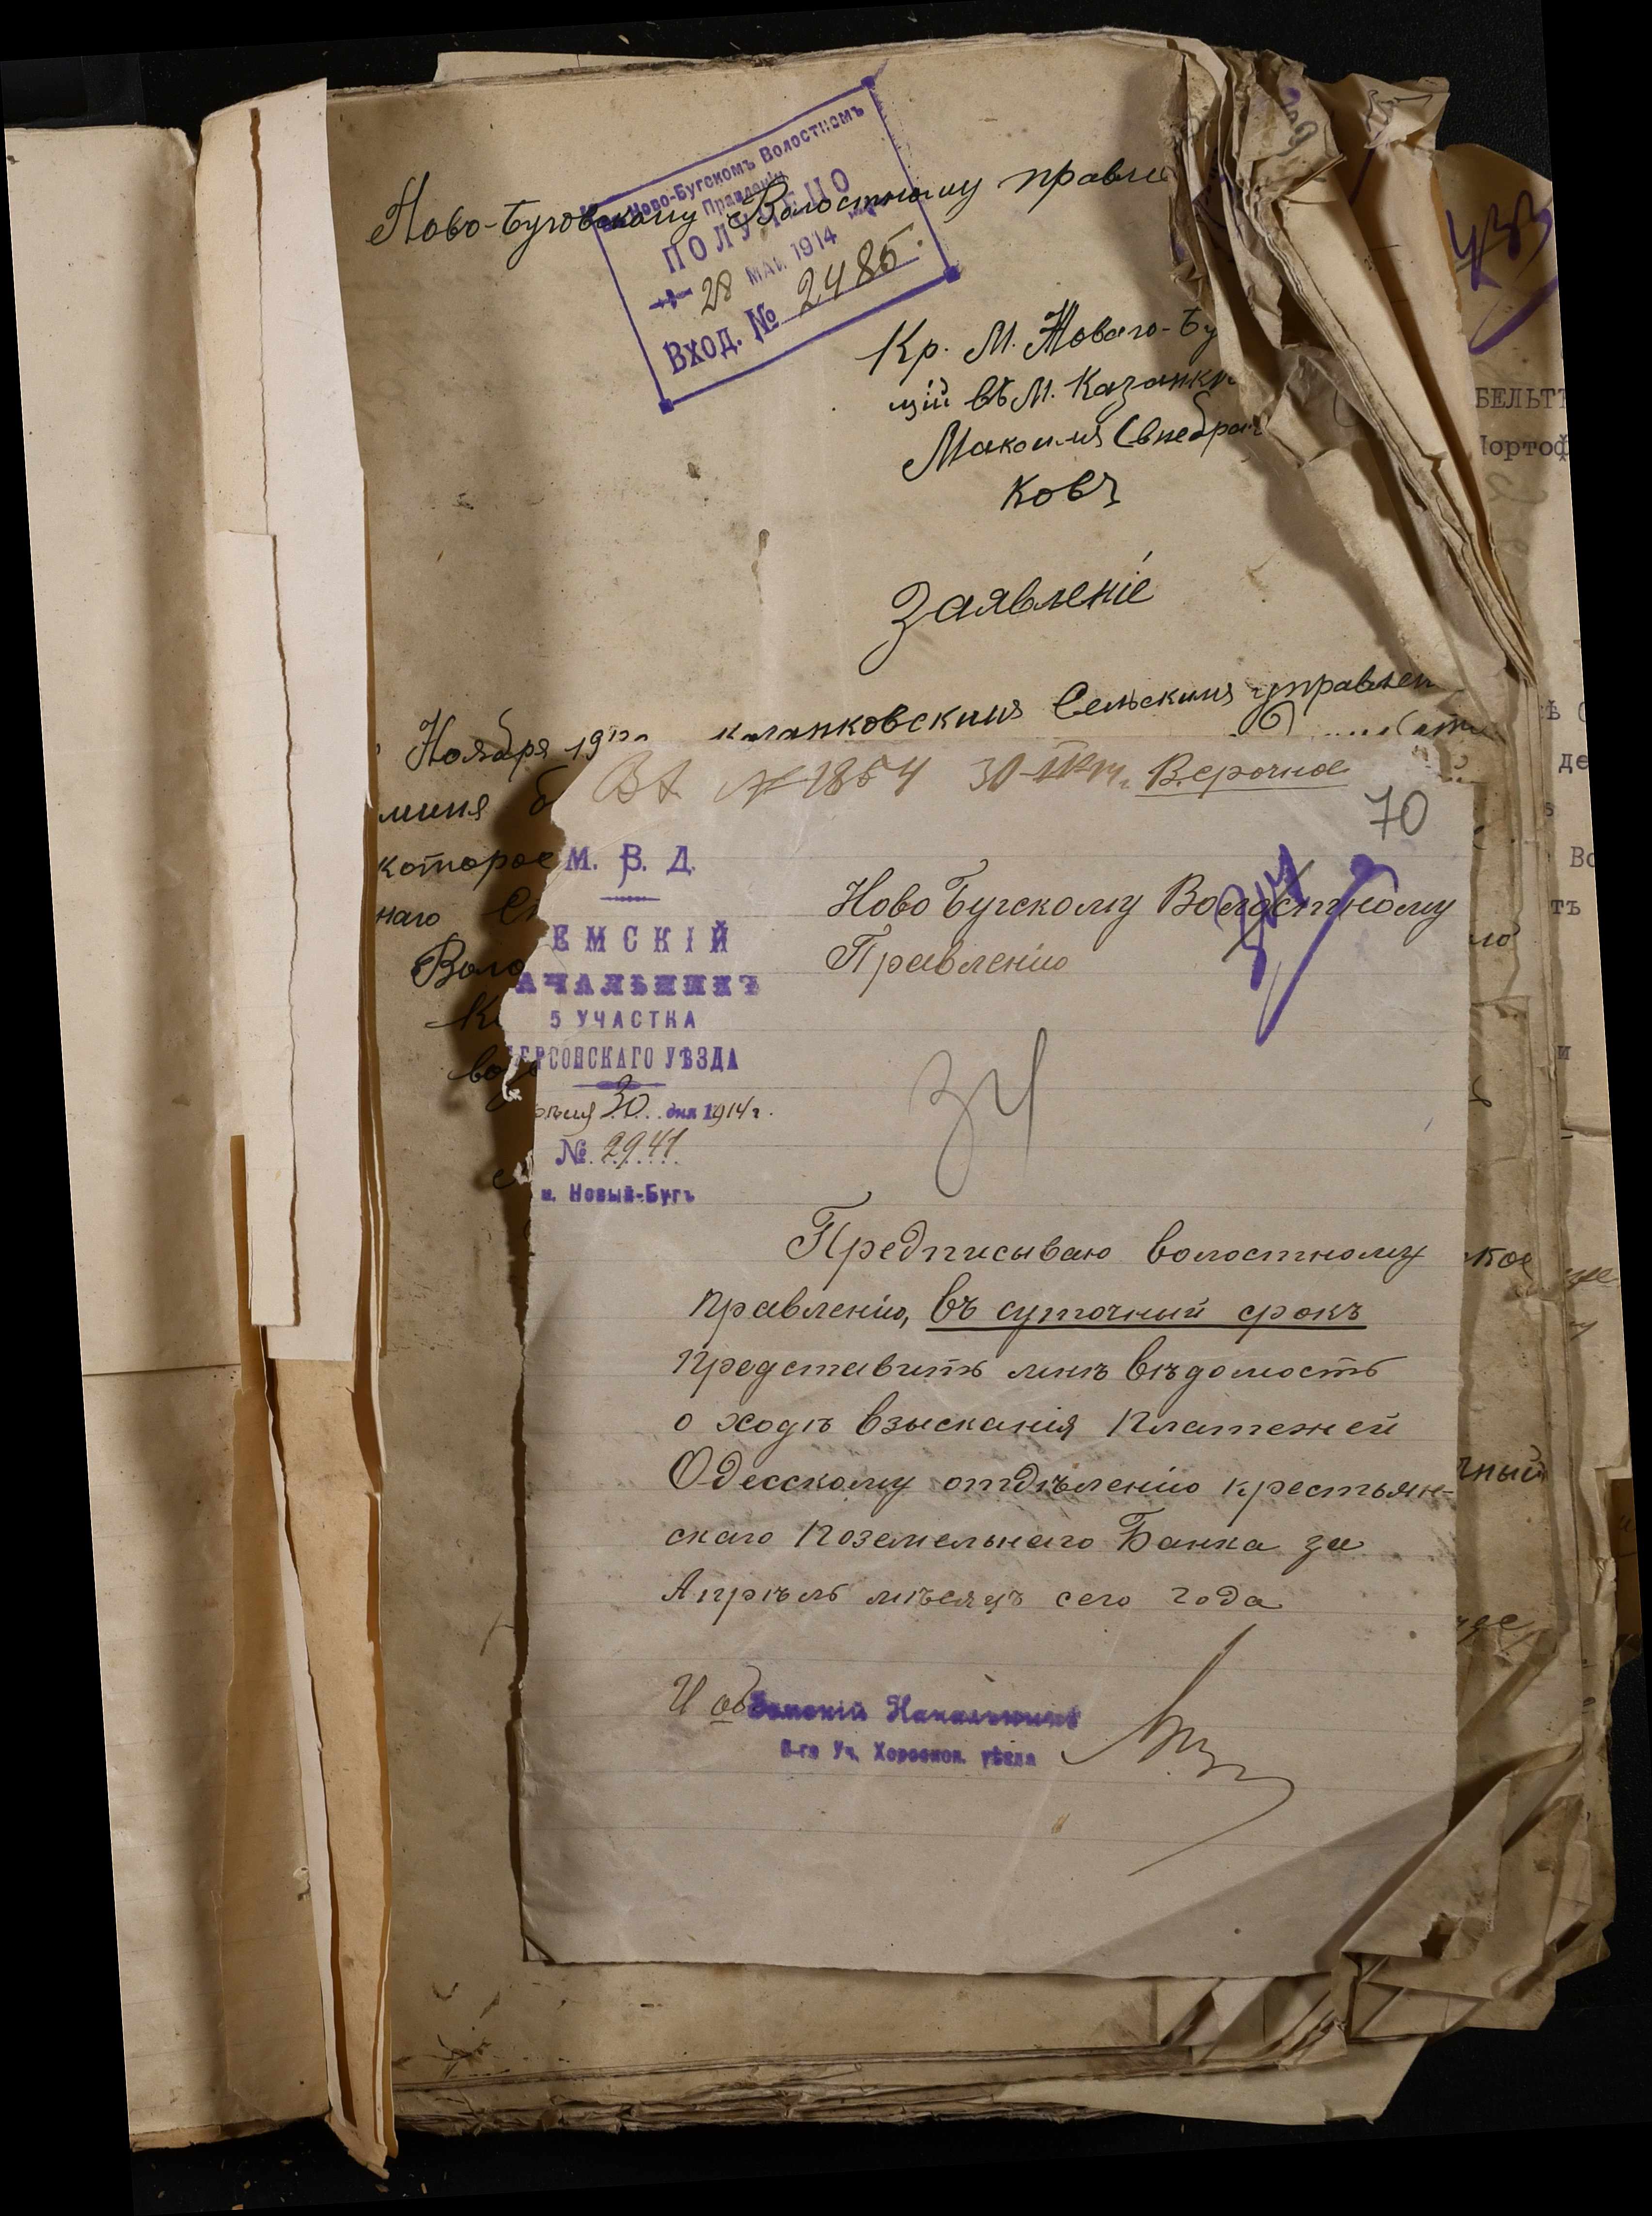 Ново-Буговскому Волостному правле
Ново-Бугскомъ Волостномъ
Правленіи
ПОЛУЧЕНО
28 МАЯ 1914
Вход. № 2485
Кр. М. Новаго-Бу
щій въ М. Казанк
Максимъ
ковъ
Заявленіе
Ноября 191 Сельскимъ управлен
которое
наго
Воло
ВХ № 1854 30 Срочное
70
М. В. Д.
ЕМСКІЙ
АЧАЛЬНИКЪ
5 УЧАСТКА
ЕРСОНСКАГО УѢЗДА
30 дня 1914 г.
№ 2941
м. Новый-Бугъ
Ново Бугскому Волостному
Правленію
34
Предписываю волостному
правленію, въ суточный срокъ
представить мнѣ вѣдомость
о ходѣ взысканія платежей
Одесскому отдѣленію крестьян-
скаго Поземельнаго Банка за
Апрѣль мѣсяцъ сего года
И об Земскій Начальникъ
5-го Уч. Херсонск. уѣзда
433
БЕЛЬТ
ортоф
де
Во
тъ
и
кое
чный